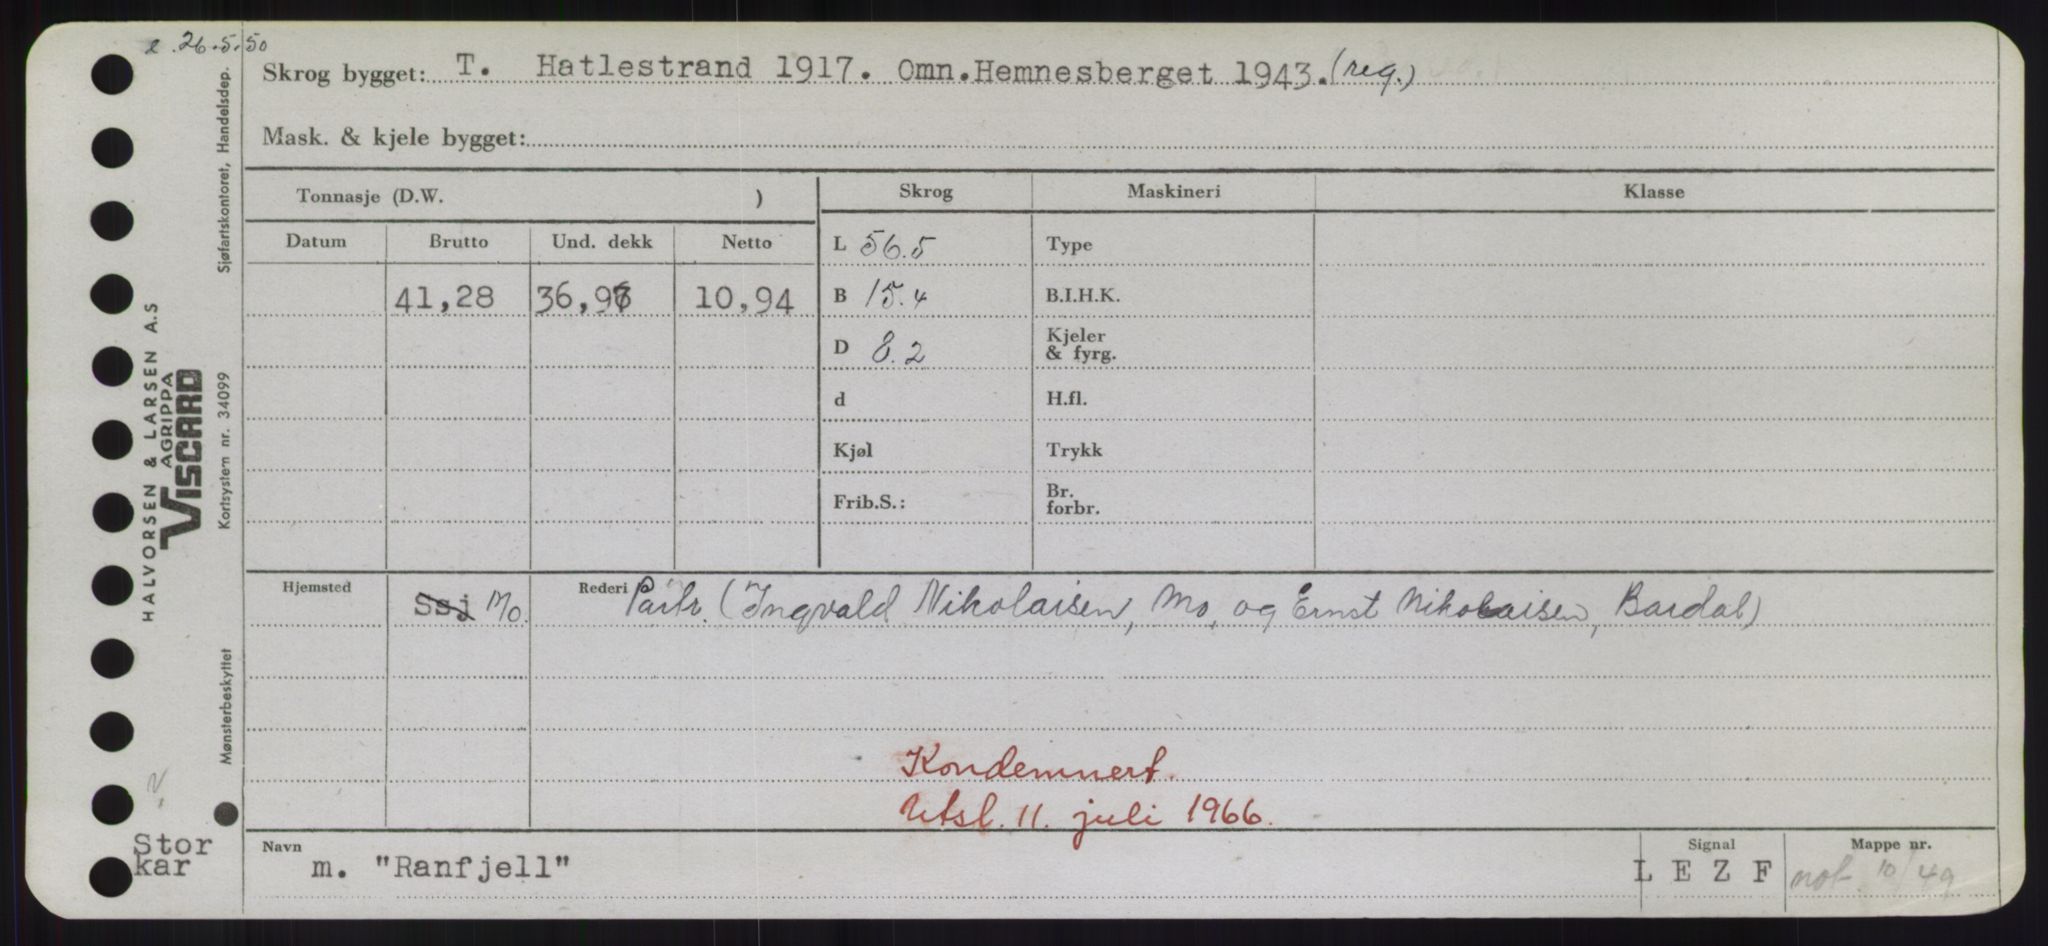 2. 26.5.50
Skrog bygget: T. Hatlestrand 1917. Omn. Hemnesberget 1943. (reg.)
Mask. & kjele bygget:
Tonnasje (D.W. )
Skrog
Maskineri
Klasse
Datum Brutto Und. dekk Netto
41,28 36,96 10,94
L 56.5
B 15.4
D 8.2
d
Kjøl
Frib.S.:
Type
B.I.H.K.
Kjeler
& fyrg.
H.fl.
Trykk
Br.
forbr.
Hjemsted Ssj Mo. Rederi Partr. (Ingvald Nikolaisen, Mo, og Ernst Nikolaisen, Bardal)
Kondemnert.
Utsl. 11. juli 1966.
Navn m. "Ranfjell"
Signal L E Z F
Mappe nr. not 10/49
Stor
kar
HALVORSEN & LARSEN A.S
AGRIPPA
VISCARD
Mønsterbeskyttet Kortsystem nr. 34099 Sjøfartskontoret, Handelsdep.